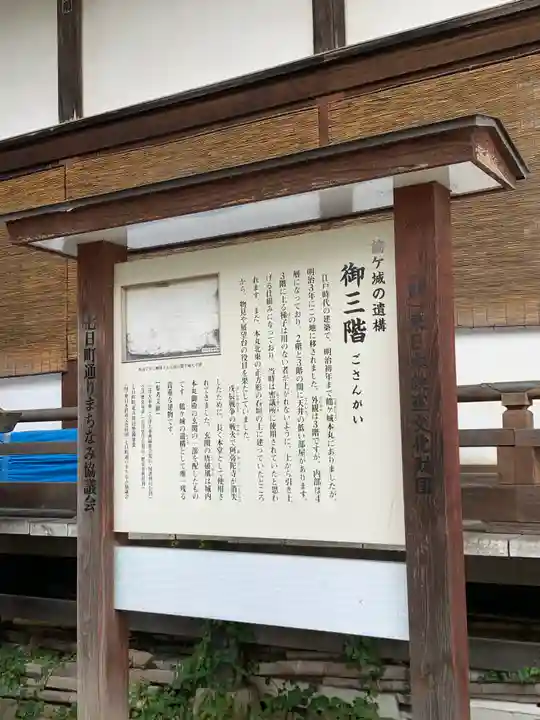 鶴ケ城の遺構
御三階 ごさんがい
江戸時代の建築で、明治初年まで鶴ケ城本丸にありましたが、
明治3年にこの地に移されました。外観は3階ですが、内部は4
層になっており、2階と3階の間に天井の低い部屋があります。
3階に上る梯子は用のない者が上がれないように、上から引き上
げる仕組みになっており、当時は密議所に使用されていたと思わ
れます。また、本丸北東の正方形の石垣の上に建っていたところ
から、物見や展望台の役目を果たしていました。
戊辰戦争の戦火で阿弥陀寺が消失
したために、長く本堂として使用さ
れてきました。玄関の唐破風は城内
本丸御殿の玄関の一部を配したもの
です。鶴ケ城の遺構として唯一残る
貴重な建物です。
【参考文献】
七日町通りまちなみ協議会